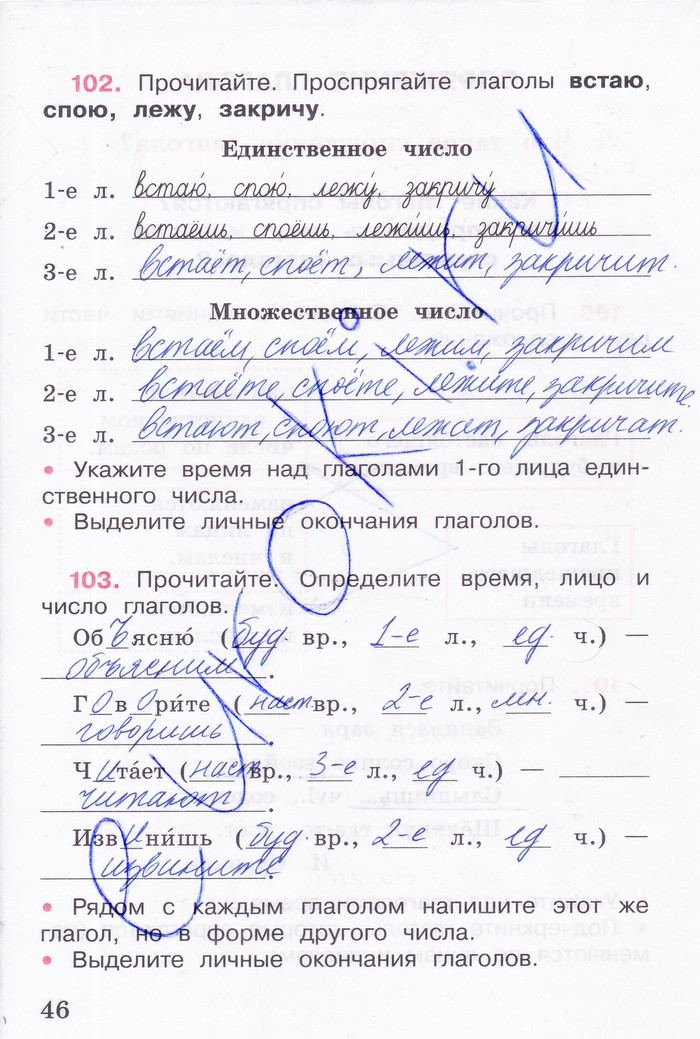 102. Прочитайте. Проспрягайте глаголы встаю,
спою, лежу, закричу.
Единственное число
1-е л. встаю́, спою́, лежу́, закричу́
2-е л. встаёшь, споёшь, лежи́шь, закричи́шь
3-е л. встаёт, споёт, лежит, закричит.
Множественное число
1-е л. встаём, споём, лежим, закричим
2-е л. встаёте, споёте, лежите, закричите.
3-е л. встают, споют, лежат, закричат.
• Укажите время над глаголами 1-го лица един-
ственного числа.
• Выделите личные окончания глаголов.
103. Прочитайте. Определите время, лицо и
число глаголов.
Объясню́ (буд вр., 1-е л., ед. ч.) —
объясним.
Говори́те (наст вр., 2-е л., мн. ч.) —
говоришь.
Чита́ет (наст вр., 3-е л., ед ч.) —
читают.
Извини́шь (буд вр., 2-е л., ед ч.) —
извините.
• Рядом с каждым глаголом напишите этот же
глагол, но в форме другого числа.
• Выделите личные окончания глаголов.
46